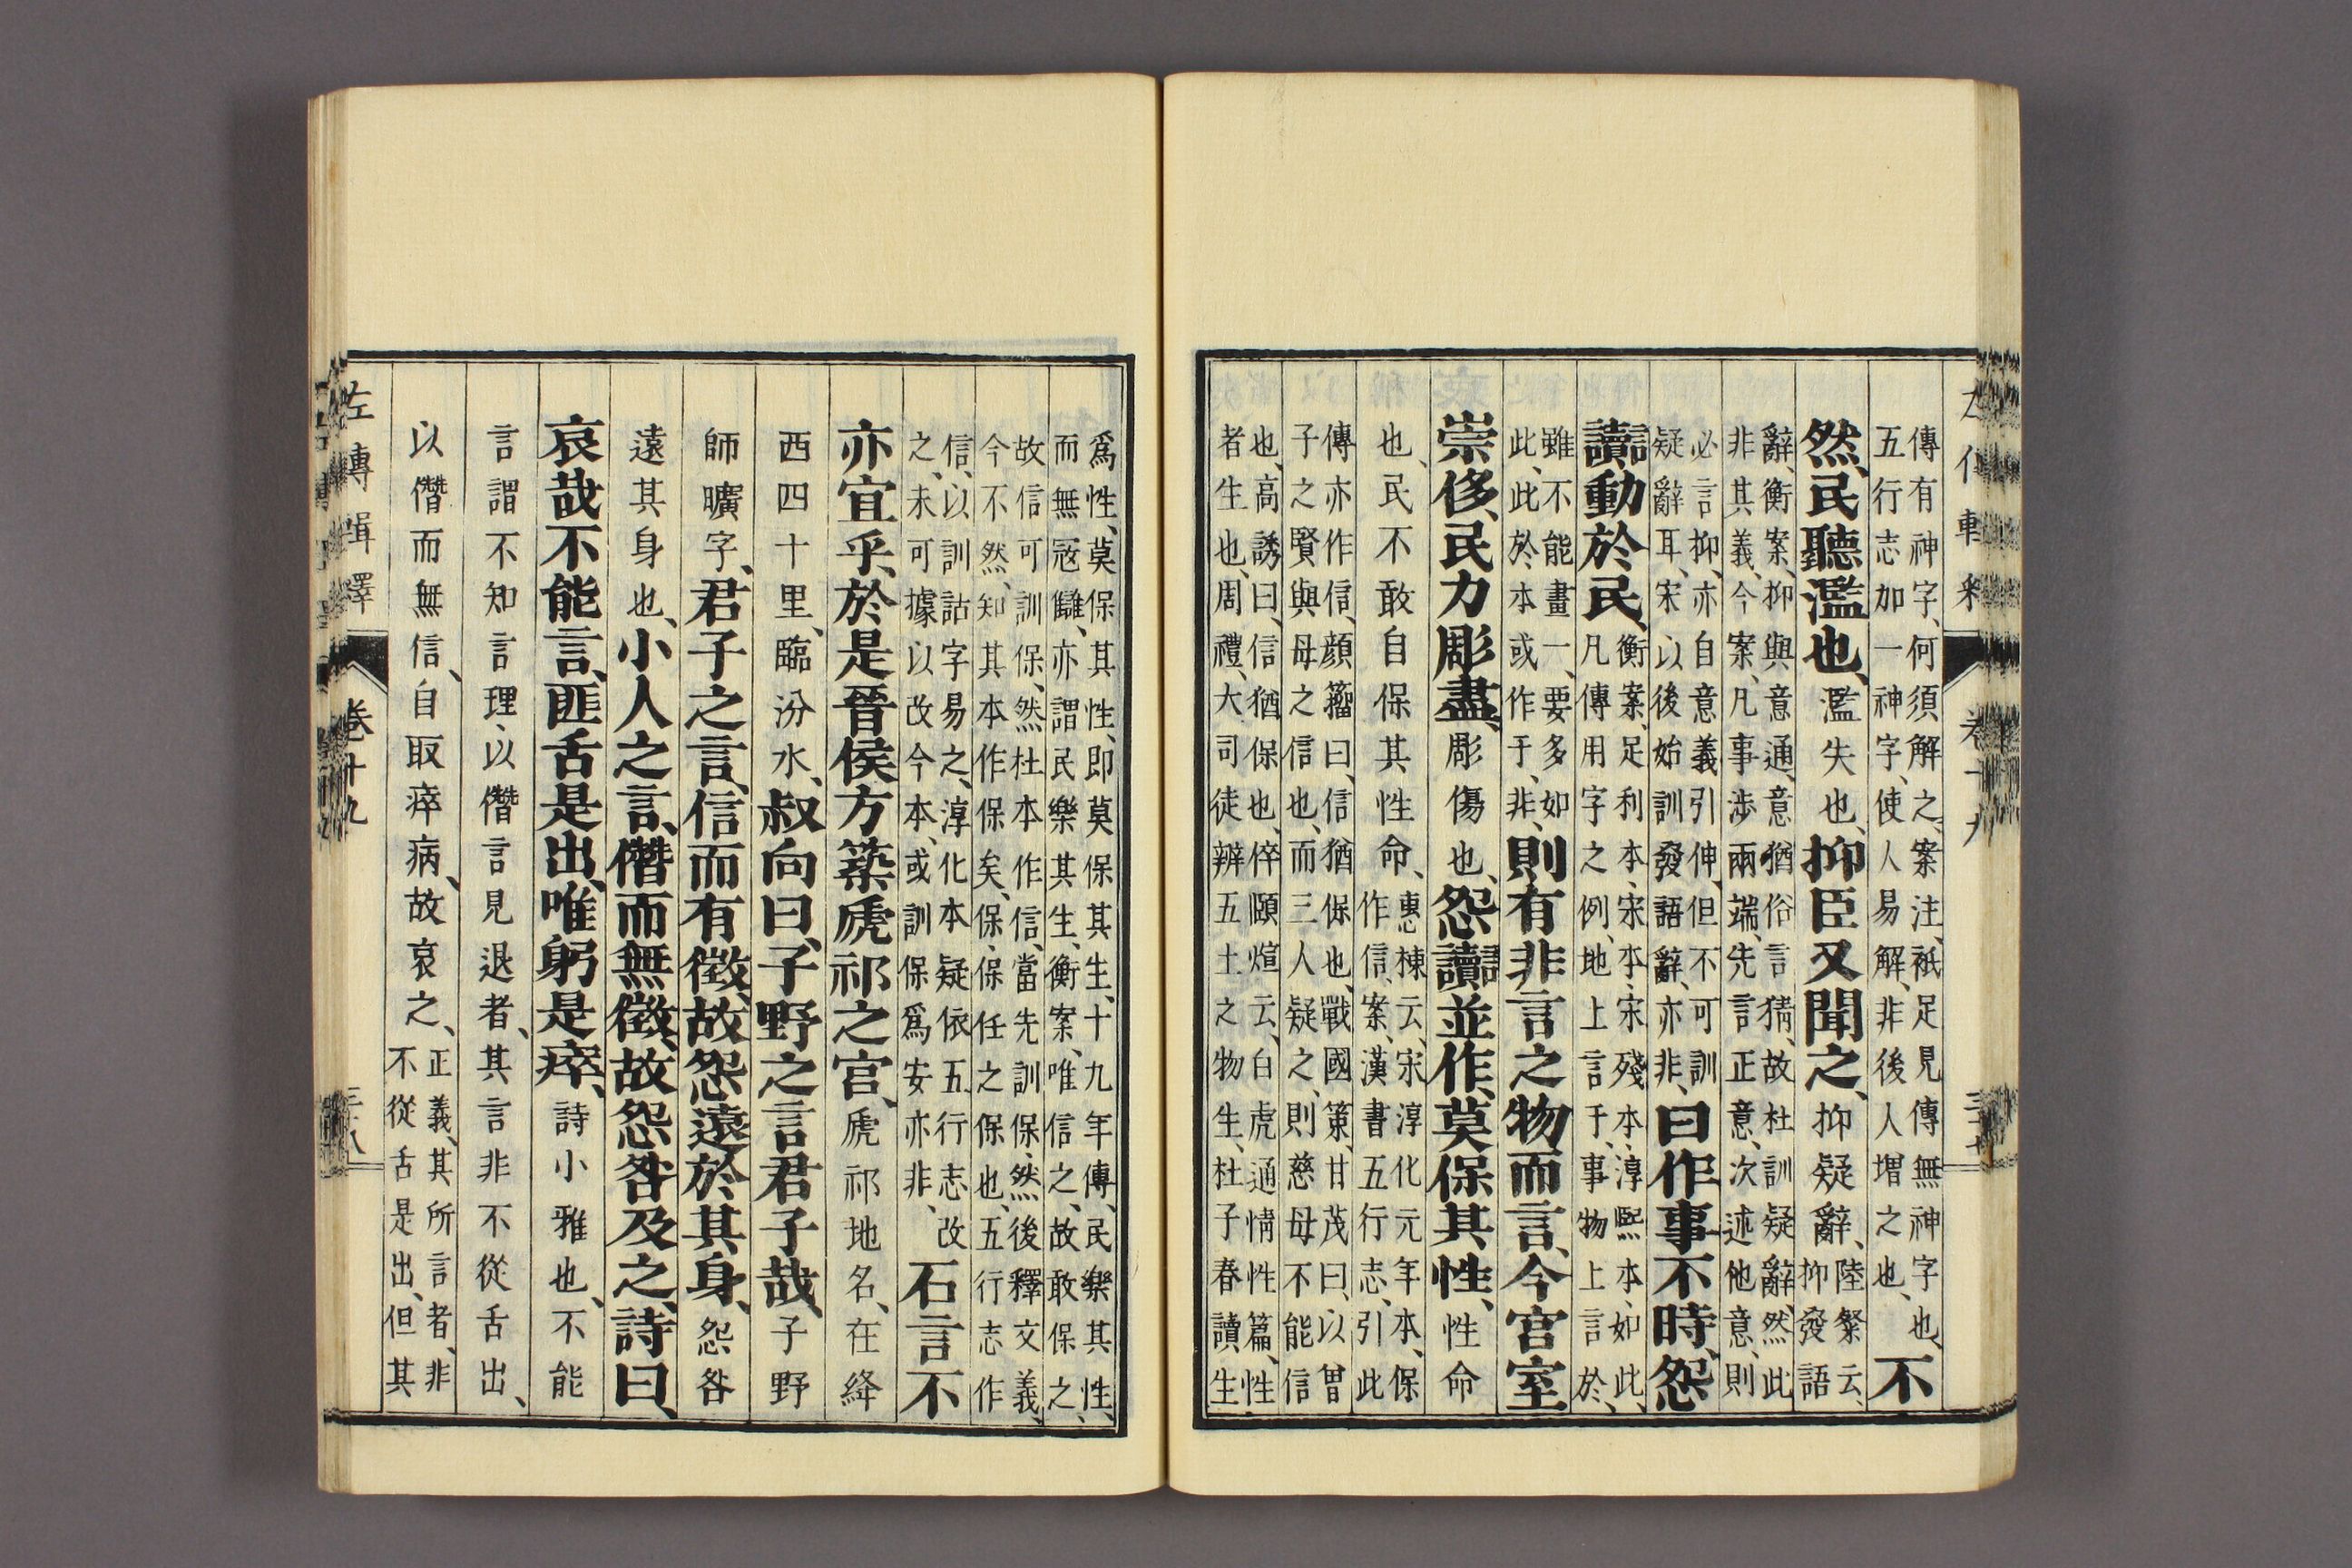 傳有神字、何須解之、案注、祇足見傳無神字也、
五行志加一神字、使人易解、非後人增之也、不
然、民聽濫也、濫失也、抑臣又聞之、抑疑辭、陸粲云、抑發語
辭、衡案、抑與意通、意猶俗言猜、故杜訓疑辭、然此
非其義、今案、凡事涉兩端、先言正意、次述他意、則
必言抑、亦自意義引伸、但不可訓
疑辭耳、宋以後始訓發語辭、亦非、曰作事不時、怨
讟動於民、衡案、足利本、宋本、宋殘本、淳熙本、如此、
凡傳用字之例、地上言于、事物上言於、
雖不能畫一、要多如
此、此於本或作于、非、則有非言之物而言、今宮室
崇侈、民力彫盡、彫傷也、怨讟並作、莫保其性、性命
也、民不敢自保其性命、惠棟云、宋淳化元年本、保
作信、案、漢書五行志、引此
傳亦作信、顔籀曰、信猶保也、戰國策、甘茂曰、以曾
子之賢與母之信也、而三人疑之、則慈母不能信
也、高誘曰、信猶保也、倅頤煊云、白虎通情性篇、性
者生也、周禮、大司徒辨五土之物生、杜子春讀生
爲性、莫保其性、即莫保其生、十九年傳、民樂其性、
而無寇讎、亦謂民樂其生、衡案、唯信之、故敢保之、
故信可訓保、然杜本作信、當先訓保、然後釋文義、
今不然、知其本作保矣、保、保任之保也、五行志作
信、以訓詁字易之、淳化本疑依五行志改
之、未可據以改今本、或訓保爲安亦非、石言不
亦宜乎、於是晉侯方築虒祁之宮、虒祁地名、在絳
西四十里、臨汾水、叔向曰、子野之言君子哉、子野
師曠字、君子之言、信而有徵、故怨遠於其身、怨咎
遠其身也、小人之言、僭而無徵、故怨咎及之、詩曰、
哀哉不能言、匪舌是出、唯躬是瘁、詩小雅也、不能
言謂不知言理、以僭言見退者、其言非不從舌出、
以僭而無信、自取瘁病、故哀之、正義、其所言者、非
不從舌是出、但其
左傳輯釋 卷十九